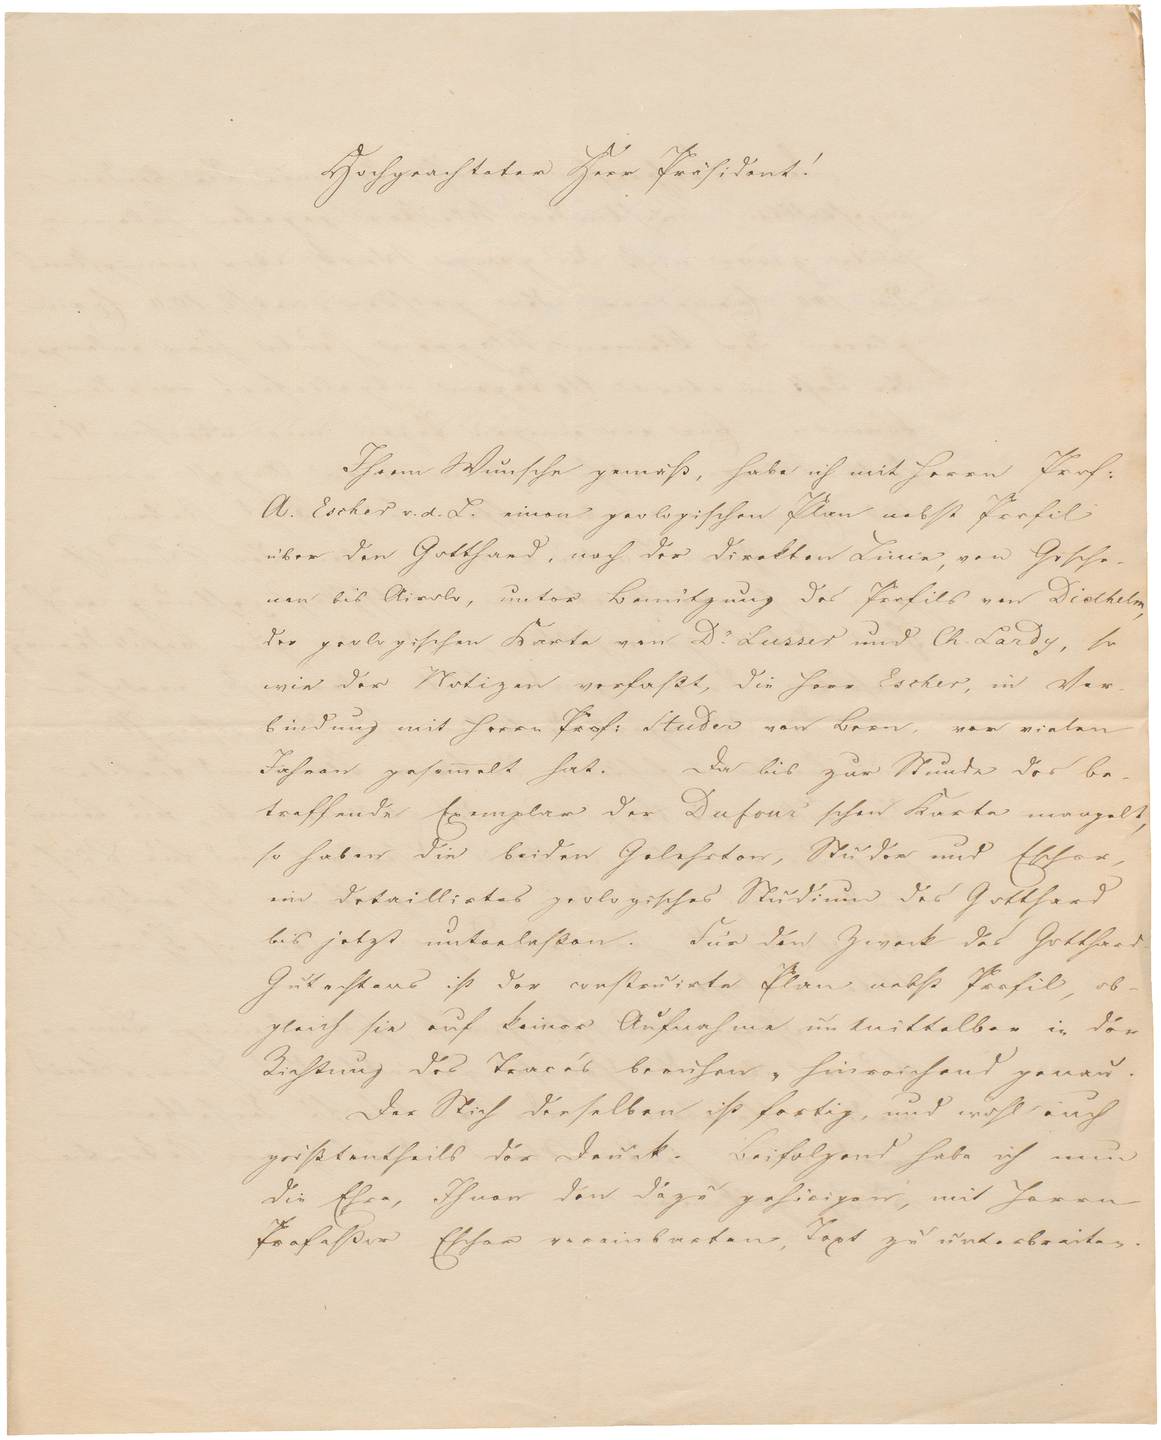 Hochgeachteter Herr Präsident!
Ihrem Wunsche gemäß, habe ich mit Herrn Prof:
A. Escher v. d. L. einen geologischen Plan nebst Profil
über den Gotthard, nach der direkten Linie, von Gesche-
nen bis Airolo, unter Benützung des Profils von Diethelm,
der geologischen Karte von Dr Lusser und Ch. Lardy, so
wie der Notizen verfaßt, die Herr Escher, in Ver-
bindung mit Herrn Prof: Studer von Bern, vor vielen
Jahren gesammelt hat. Da bis zur Stunde das be-
treffende Exemplar der Dufour'schen Karte mangelt,
so haben die beiden Gelehrten, Studer und Escher,
ein detaillirtes geologisches Studium des Gotthard
bis jetzt unterlaßen. Für den Zweck des Gotthard-
Gutachtens ist der construirte Plan nebst Profil, ob-
gleich sie auf keiner Aufnahme unmittelbar in der
Richtung des Tracés beruhen, hinreichend genau.
Der Stich derselben ist fertig, und wohl auch
größtentheils der Druck. Beifolgend habe ich nun
die Ehre, Ihnen den dazu gehörigen, mit Herrn
Profeßor Escher vereinbarten, Text zu unterbreiten.